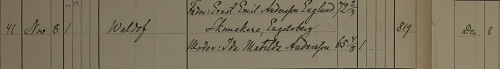 Fader: Ernst Emil Andersson Englund 72 2/3
41 Nov 8 1 Waldof Skomakare, Engelsberg 819 Dec. 8
Moder: Ida Matilda Andersson 65 4/8 1